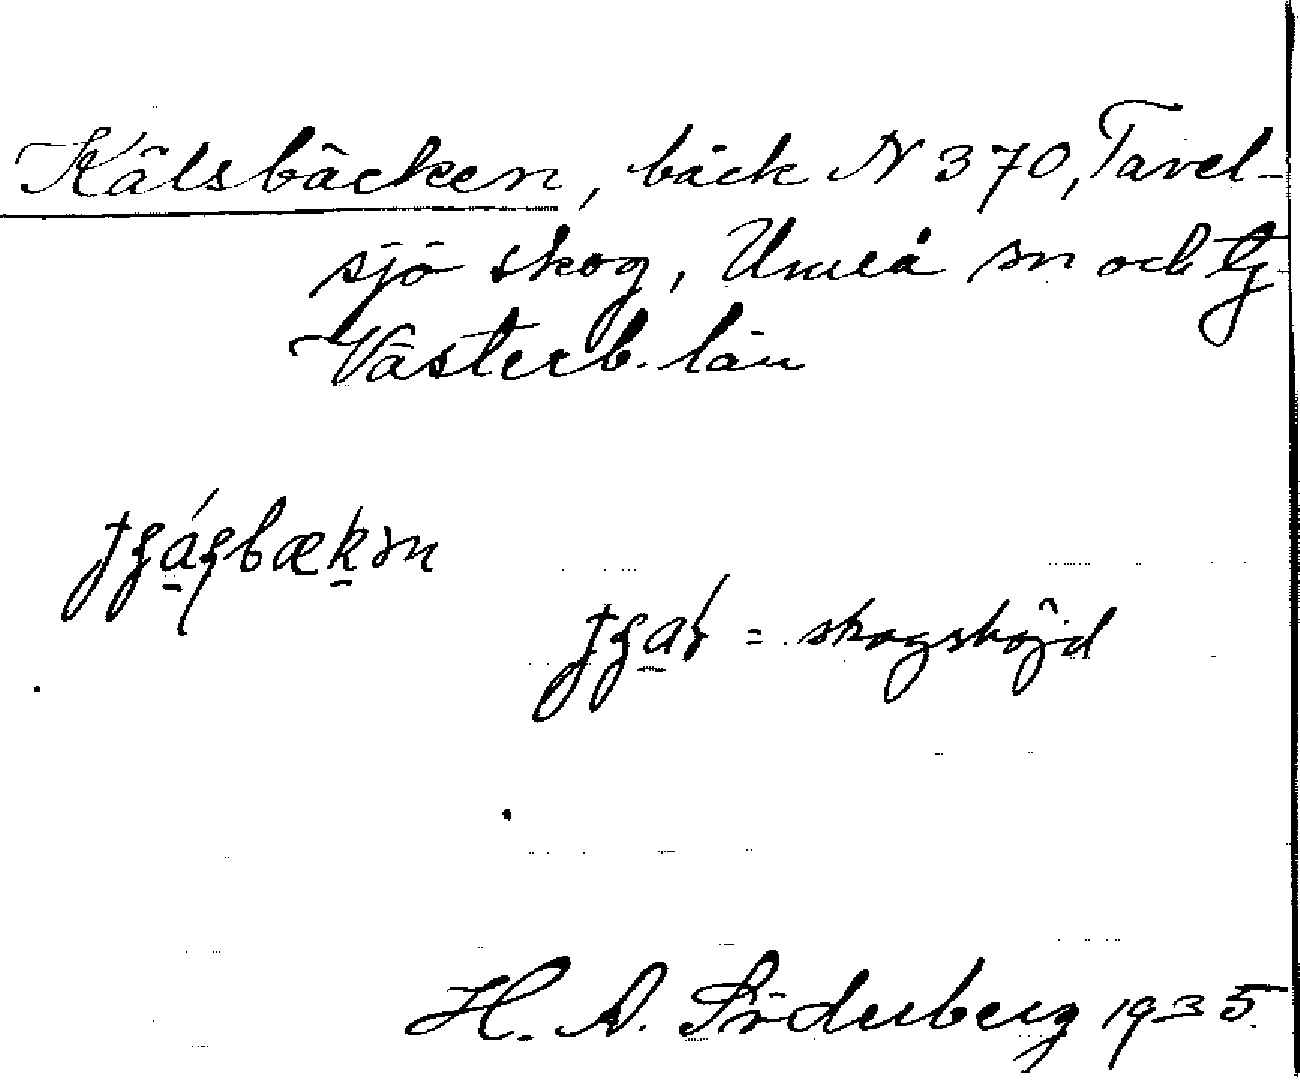 Kälsbäcken, bäck N 370, Tavel-
sjö skog, Umeå sn och tg
Västerb. län
= skogshöjd
H. A. Söderberg 1935.